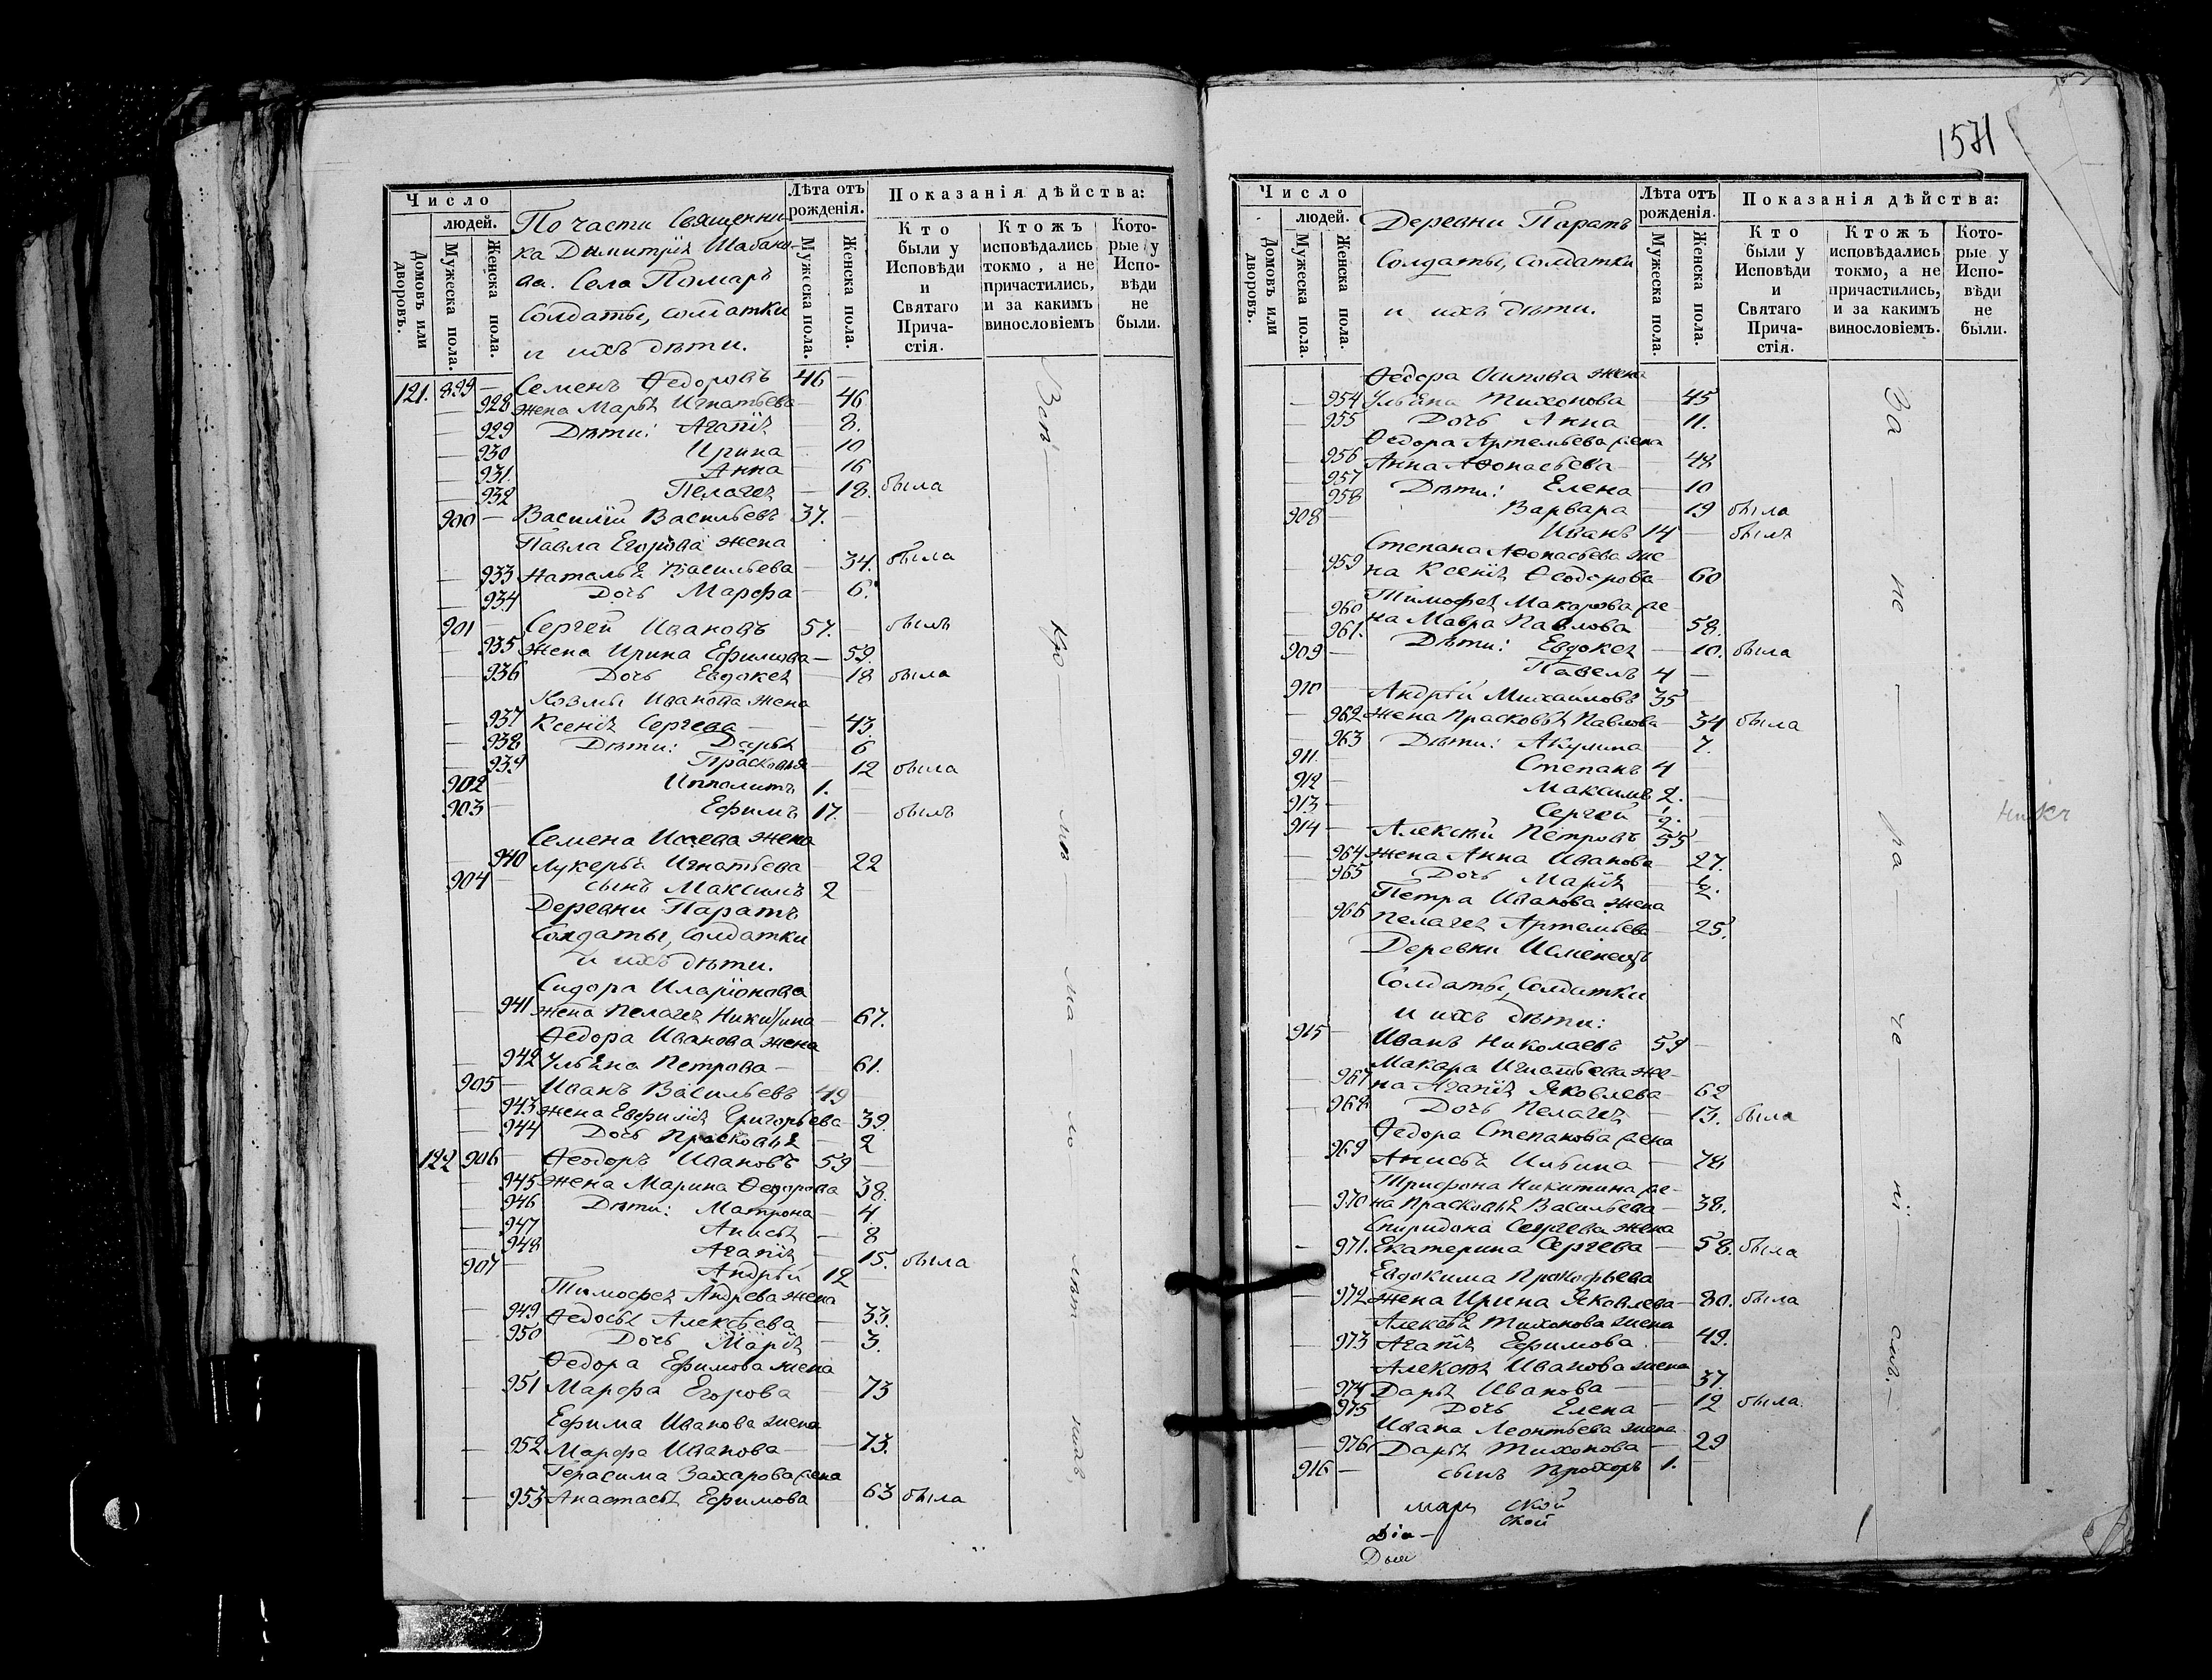 Число
людей.
Домовъ или дворовъ.
Мужеска пола.
Женска пола.
По части Священни-
ка Димитрія Шабано-
ва. Села Помаръ
Солдаты, солдатки
и ихъ дѣти.
Лѣта отъ рожденія.
Мужеска пола.
Женска пола.
Показанія дѣйства:
Кто были у Исповѣди и Святаго Прича-стія.
Ктожъ исповѣдались токмо, а не причастились, и за какимъ винословіемъ
Кото-рые у Испо-вѣди не были.
121. 899 — Семенъ Ѳедоровъ 46 —
— 928 жена Марья Игнатьева — 46
— 929 Дѣти: Агапія — 8.
— 930 Ирина — 10
— 931. Анна — 16
— 932 Пелагея — 18. была
900 — Василій Васильевъ 37. —
Павла Егорова жена
— 933 Наталья Васильева — 34. была
— 934 Дочь Марфа — 6.
901 — Сергей Ивановъ 57. былъ
— 935 жена Ирина Ефимова — 59.
— 936 Дочь Евдокея — 18 была
Козмы Иванова жена
— 937 Ксенія Сергева — 43.
— 938 Дѣти: Дарья — 6
— 939 Прасковья — 12 была
902 — Ипполитъ 1. —
903 — Ефимъ 17. — былъ
Семена Исаева жена
— 940 Лукерья Игнатьева — 22
904 — сынъ Максимъ 2 —
Деревни Паратъ
Солдаты, солдатки
и ихъ дѣти.
Сидора Иларіонова
— 941 жена Пелагея Никитина — 67.
Ѳедора Иванова жена
— 942 Ульяна Петрова — 61.
905 — Иванъ Васильевъ 49
— 943 жена Евфимія Григорьева — 39.
— 944 Дочь Прасковья — 2
122 906 — Ѳеодоръ Ивановъ 59 —
— 945 жена Марина Ѳедорова 38.
— 946 Дѣти: Матрона — 4.
— 947 Анисья — 8
— 948 Агапія — 15. была
907 — Андрей 12
Тимофея Андрева жена
— 949 Ѳедосья Алексѣева — 33.
— 950 Дочь Марія — 3.
Ѳедора Ефимова жена
— 951 Марфа Егорова — 73
Ефима Иванова жена
— 952 Марфа Иванова — 73.
Герасима Захарова жена
— 953 Анастасья Ефимова — 63 была
1571
Число
людей.
Домовъ или дворовъ.
Мужеска пола.
Женска пола.
Деревни Паратъ
Солдаты, солдатки
и ихъ дѣти.
Лѣта отъ рожденія.
Мужеска пола.
Женска пола.
Показанія дѣйства:
Кто были у Исповѣди и Святаго Прича-стія.
Ктожъ исповѣдались токмо, а не причастились, и за какимъ винословіемъ.
Кото-рые у Испо-вѣди не были.
Ѳедора Осипова жена
— 954 Ульяна Тихонова — 45
— 955 Дочь Анна — 11.
Ѳедора Артемьева жена
— 956 Анна Аѳонасьева — 48
— 957 Дѣти: Елена — 10
— 958 Варвара — 19 была
908 Иванъ 14 — былъ
Степана Аѳонасьева же-
— 959 на Ксенія Ѳеодорова — 60
Тимофея Макарова же-
— 960 на Мавра Павлова — 58.
— 961. Дѣти: Евдокея — 10. была
909 — Павелъ 4 —
910 — Андрѣй Михаиловъ 35
— 962 жена Прасковья Павлова — 34 была
— 963 Дѣти: Акулина — 7.
911. — Степанъ 4 —
912 — Максимъ 2. —
913 — Сергей 1/2. —
914 — Алексѣй Петровъ 55 —
— 964 жена Анна Иванова — 27.
— 965 Дочь Марія — 1/2.
Петра Иванова жена
— 966 Пелагея Артемьева — 25.
Солдаты, Солдатки
и ихъ дѣти:
915 — Иванъ Николаевъ 59 —
Макара Игнатьева же-
— 967 на Агапія Яковлева — 62
— 968 Дочь Пелагея — 13. была
Ѳедора Степанова жена
— 969 Анисья Ильина — 78
Трифона Никитина же-
— 970 на Прасковья Васильева — 38.
Спиридона Сергева жена
— 971. Екатерина Сергева — 58. была
Евдокима Прокофьева
— 972 жена Ирина Яковлева — 80. была
Алексѣя Тихонова жена
— 973 Агапія Ефимова 49.
Алексѣя Иванова жена
— 974 Дарья Иванова — 37.
— 975 Дочь Елена — 12 была.
Ивана Леонтьева жена
— 976 Дарья Тихонова — 29
916 — сынъ Прохоръ 1. —